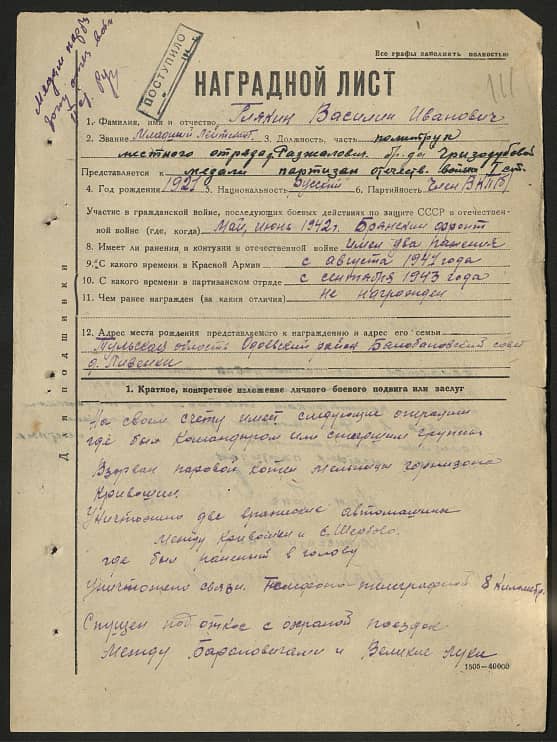 Все графы заполнять полностью
ПОСТУПИЛО
НАГРАДНОЙ ЛИСТ
1. Фамилия, имя и отчество Василий Иванович
2. Звание Младший Лейтенант 3. Должность, часть политрук
местного отряда бр-ды Гризодубовой
Представляется к медали партизан отечеств. войны I ст.
4. Год рождения 1921 5. Национальность Русский 6. Партийность Член ВКП(б)
Участие в гражданской войне, последующих боевых действиях по защите СССР и отечествен-
ной войне (где, когда) Май, июнь 1942 г. Брянский фронт
8. Имеет ли ранения и контузии в отечественной войне имел два ранения
9. С какого времени в Красной Армии с августа 1941 года
10. С какого времени в партизанском отряде с сентября 1943 года
11. Чем ранее награжден (за какия отличия) не награжден
12. Адрес места рождения представляемого к награждению и адрес его семьи
Тульская область Одоевский район совет
д.
Для подшивки
1. Краткое, конкретное изложение личного боевого подвига или заслуг
На своем счету имеет следующие операции
где был командиром или старшим группы
Взорван паровой котел мельницы гарнизона
Кривошин.
Уничтожено две вражеские автомашины
между и с.
где был раненый в голову
Уничтожено связи. Телефоно телеграфной 8 километр.
Спущен под откос с охраной поезд
Между Барановичами и Великие Луки
1505—40000